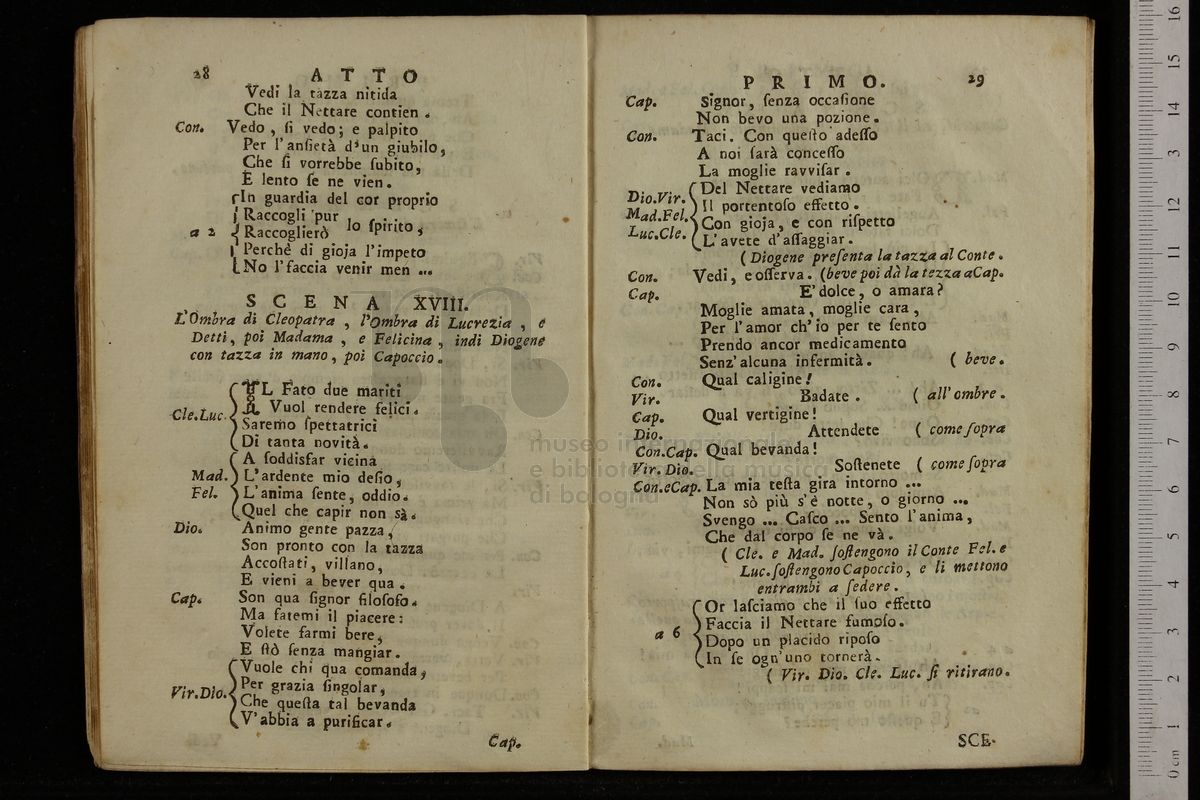 28 ATTO
Vedi la tazza nitida
Che il Nettare contien .
Con. Vedo , ſi vedo ; e palpito
Per l'anſietà d'un giubilo,
Che ſi vorrebbe ſubito,
E lento ſe ne vien .
In guardia del cor proprio
Raccogli pur
a 2 Raccoglierò lo ſpirito,
Perchè di gioja l'impeto
No l'faccia venir men ...
SCENA XVIII.
L'Ombra di Cleopatra , l'Ombra di Lucrezia , e
Detti, poi Madama , e Felicina , indi Diogene
con tazza in mano, poi Capoccio.
IL Fato due mariti
Vuol rendere felici.
Cle.Luc. Saremo ſpettatrici
Di tanta novità.
A ſoddisfar vicina
Mad. L'ardente mio deſio,
Fel. L'anima ſente, oddio.
Quel che capir non sà.
Dio. Animo gente pazza,
Son pronto con la tazza
Accoſtati, villano,
E vieni a bever qua .
Cap. Son qua ſignor filoſofo.
Ma fatemi il piacere:
Volete farmi bere,
E ſtò ſenza mangiar.
Vuole chi qua comanda,
Vir.Dio. Per grazia ſingolar,
Che queſta tal bevanda
V'abbia a purificar.
Cap.
PRIMO. 29
Cap. Signor, ſenza occaſione
Non bevo una pozione.
Con. Taci. Con queſto adeſſo
A noi ſarà conceſſo
La moglie ravviſar .
Del Nettare vediamo
Dio.Vir. Il portentoſo effetto .
Mad.Fel. Con gioja, e con riſpetto
Luc.Cle. L'avete d'aſſaggiar.
( Diogene preſenta la tazza al Conte .
Con. Vedi, e oſſerva. (beve poi dà la tezza a Cap.
Cap. E' dolce, o amara?
Moglie amata, moglie cara ,
Per l'amor ch'io per te ſento
Prendo ancor medicamento
Senz'alcuna infermità. ( beve.
Con. Qual caligine!
Vir. Badate . ( all'ombre .
Cap. Qual vertigine!
Dio. Attendete ( come ſopra
Con.Cap. Qual bevanda!
Vir. Dio. Soſtenete ( come ſopra
Con.eCap. La mia teſta gira intorno ...
Non sò più s'è notte, o giorno ...
Svengo ... Caſco ... Sento l'anima,
Che dal corpo ſe ne và.
( Cle. e Mad. ſoſtengono il Conte Fel. e
Luc. ſoſtengono Capoccio, e li mettono
entrambi a ſedere .
Or laſciamo che il ſuo effetto
Faccia il Nettare fumoſo.
a 6 Dopo un placido ripoſo
In ſe ogn'uno tornerà.
( Vir. Dio. Cle. Luc. ſi ritirano.
SCE-
museo internazionale
e biblioteca della musica
di bologna
0 cm 1 2 3 4 5 6 7 8 9 10 11 12 13 14 15 16